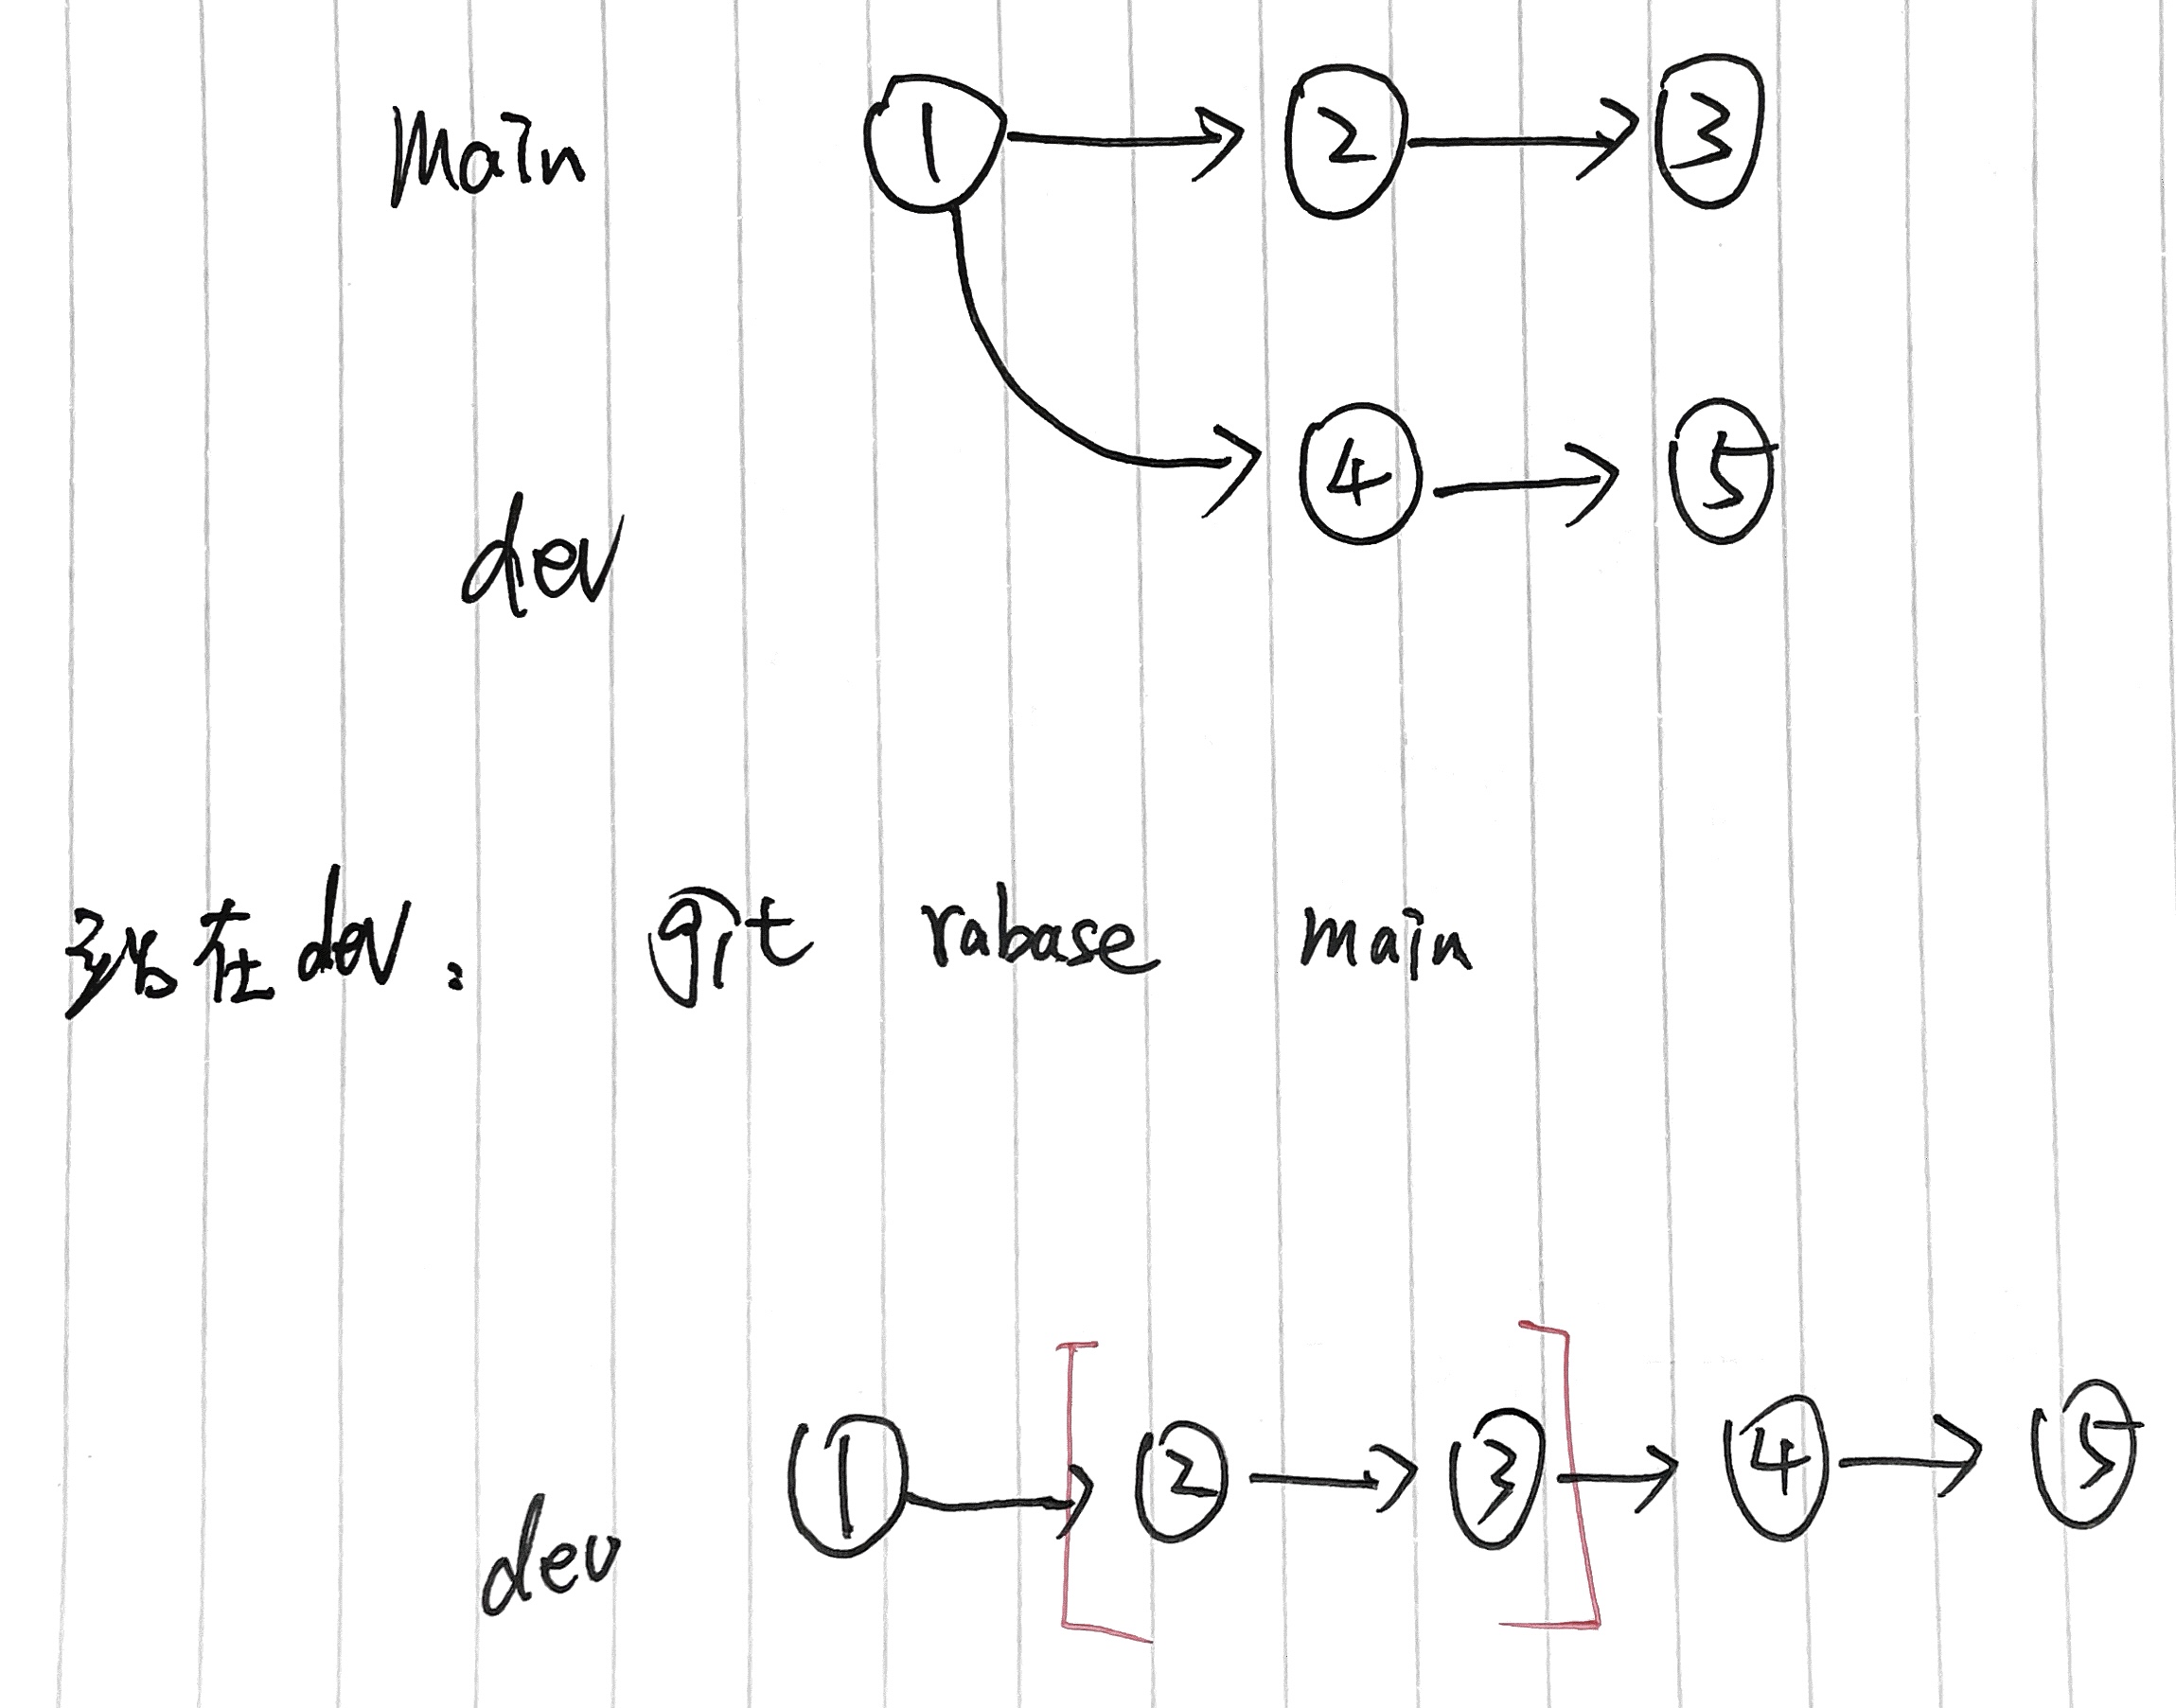 Main ① → ② → ③
④ → ⑤
dev
在dev: git rabase main
① → ② → ③ → ④ → ⑤
dev